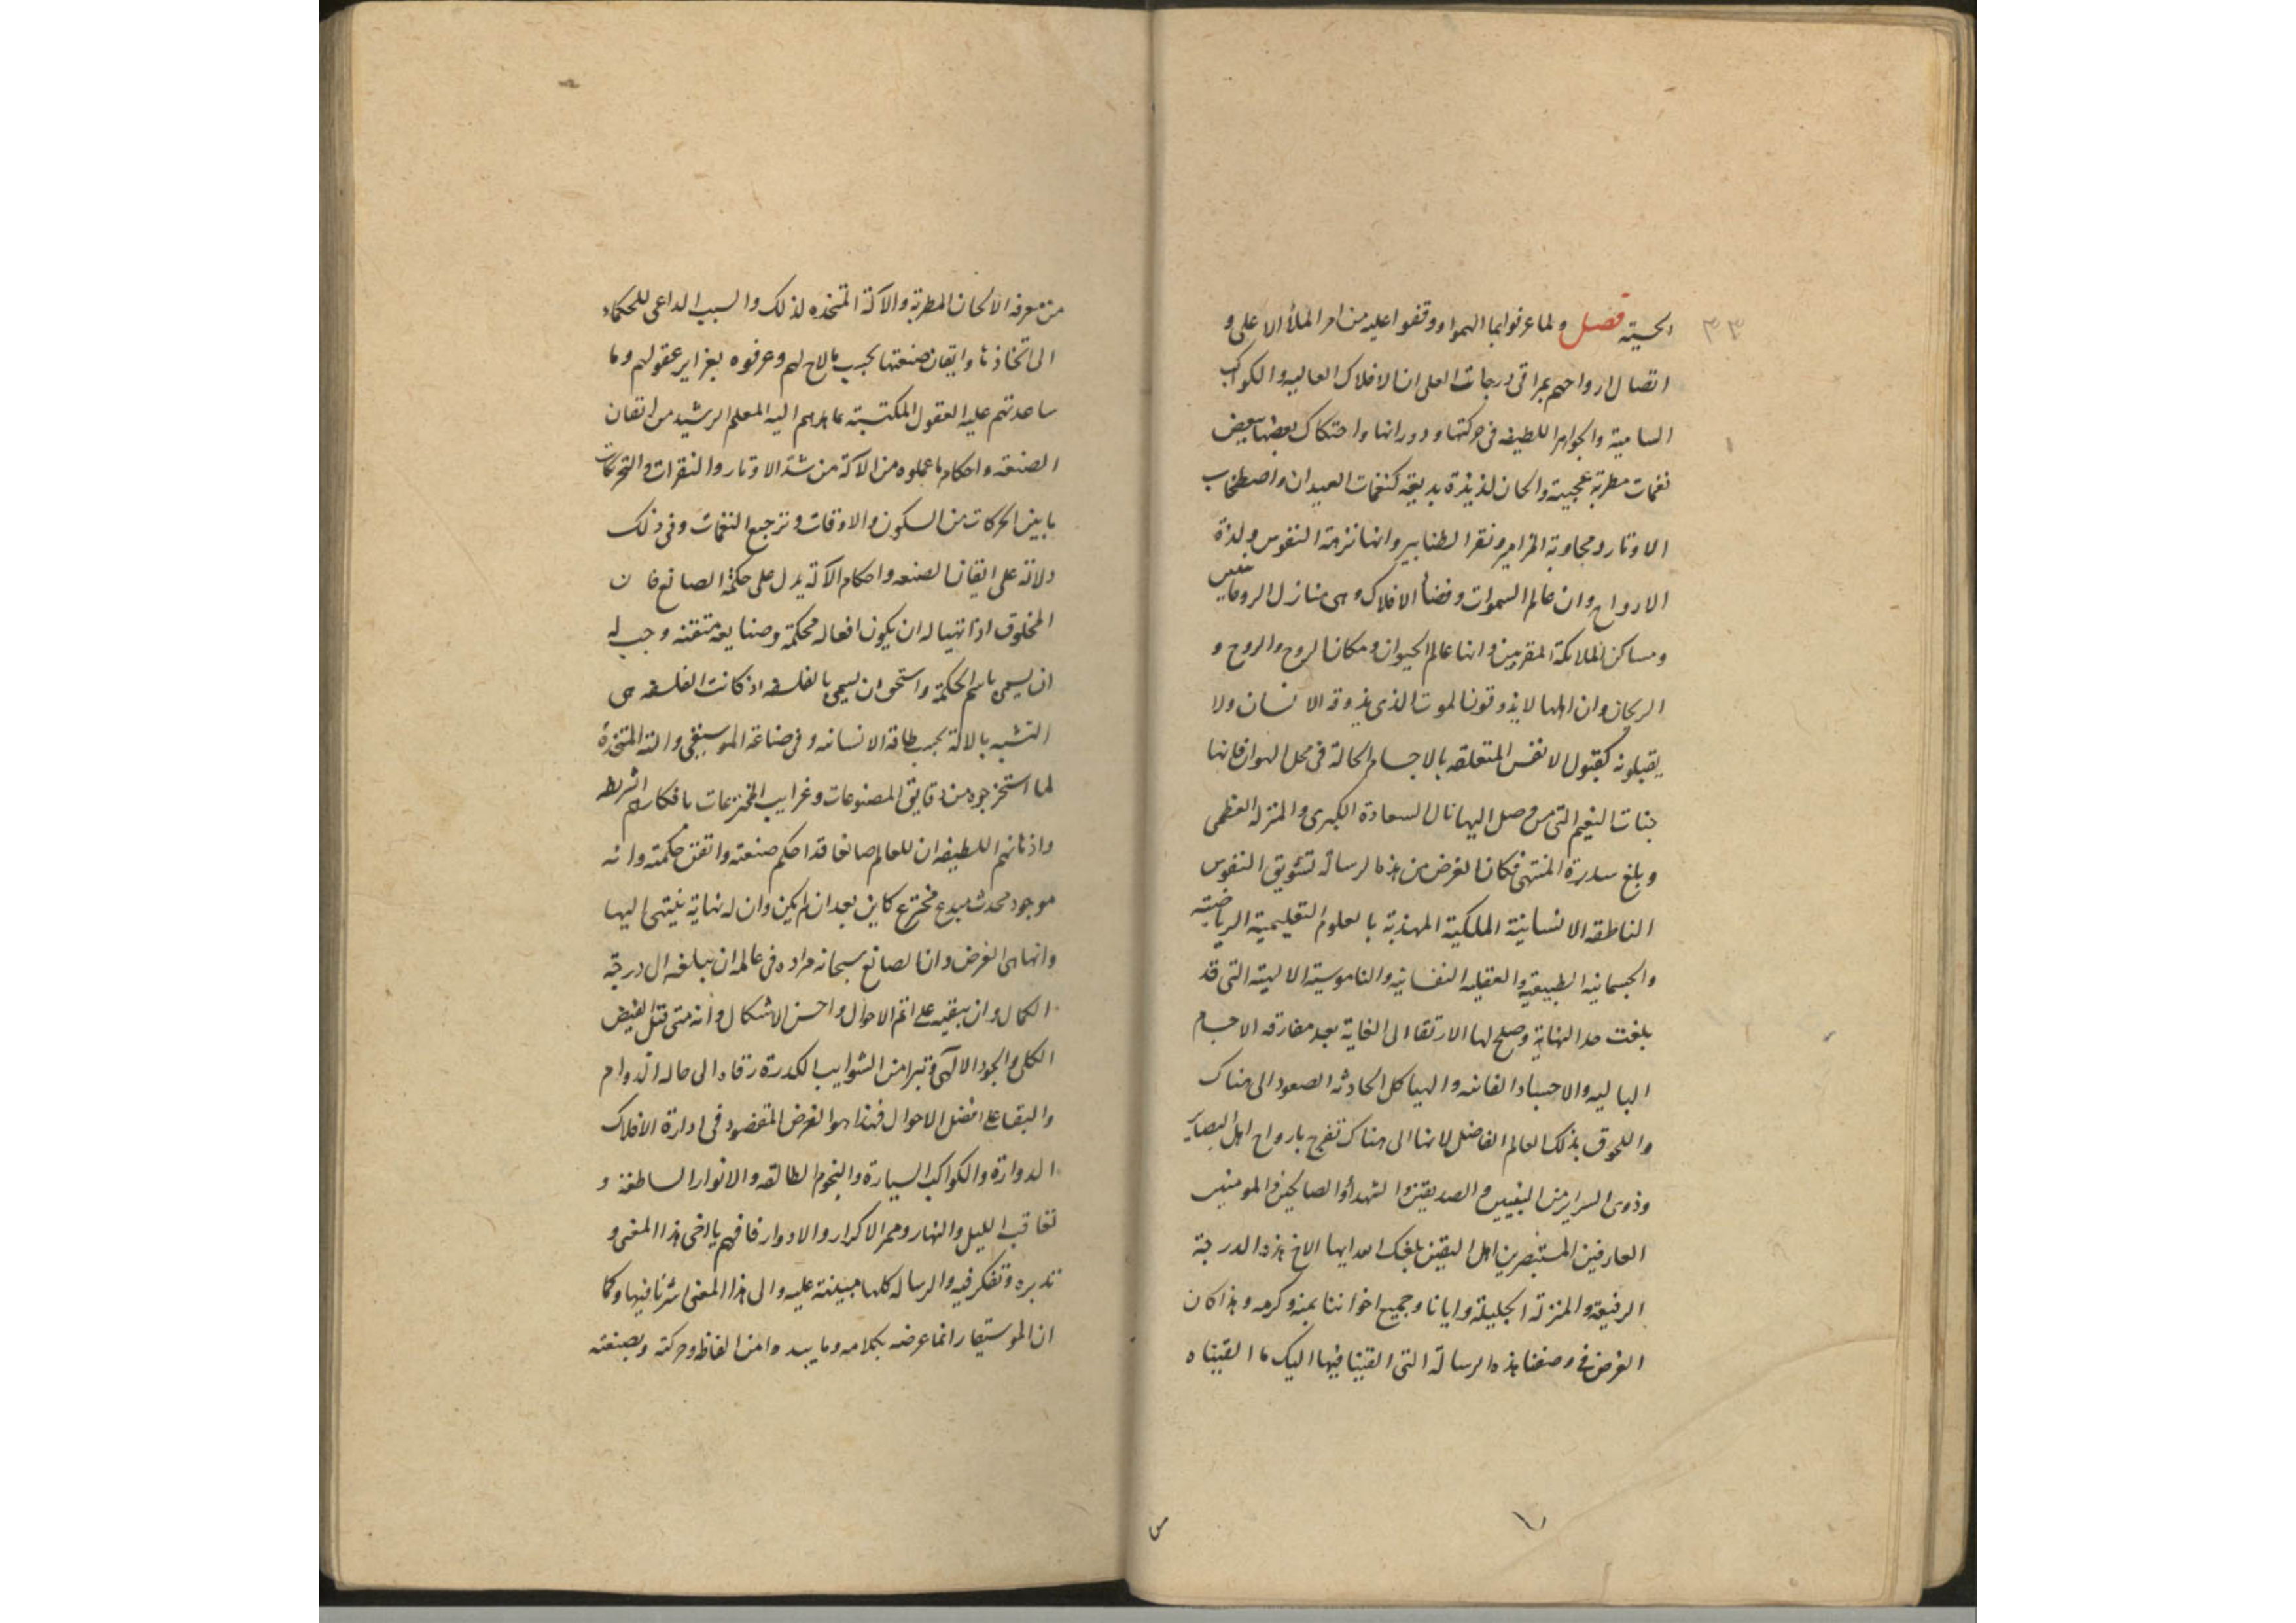 ٣٣
الحسية فصل ولما عرفوا بما الهموا ووقفوا عليه من امر الملأ الاعلى و
اتصال ارواحهم بمراقى درجات العلى ان الافلاك العاليه والكواكب
السامية والجواهر اللطيفه فى حركتها ودورانها واحتكاك بعضها ببعض
نغمات مطربة عجيبة والحان لذيذة بديعة كنغمات العيدان واصطخاب
الاوتار ومجاوبة المزامير ونقر الطنابير وانها نزهة النفوس ولذة
الارواح وان عالم السموات وفضا الافلاك وهى منازل الروحانيين
ومساكن الملائكة المقربين وانها عالم الحيوان ومكان الروح والروح و
الريحان وان اهلها لا يذوقون الموت الذى يذوقه الانسان ولا
يقبلونه كقبول الانفس المتعلقه بالاجسام الحالة فى محل الهوان فانها
جنات النعيم التى من وصل اليها نال السعادة الكبرى والمنزلة العظمى
وبلغ سدرة المنتهى فكان الغرض من هذه الرسالة تشويق النفوس
الناطقه الانسانية الملكية المهذبة بالعلوم التعليمية الرياضية
والجسمانيه الطبيعية والعقليه النفسانيه والناموسية الالهية التى قد
بلغت حد النهاية وصلح لها الارتقا الى الغاية بعد مفارقه الاجسام
الباليه والاجساد الفانيه والهياكل الحادثه الصعود الى هناك
واللحوق بذلك العالم الفاضل لانها الى هناك تعرج بارواح اهل البصاير
وذوى السراير من النبيين والصديقين والشهدأ والصالحين والمومنين
العارفين المستبصرين اهل اليقين بلغك الله ايها الاخ هذه الدرجة
الرفيعة والمنزلة الجليلة وايانا وجميع اخواننا بمنه وكرمه وهذا كان
الغرض فى وصفنا هذه الرسالة التى القينا فيها اليك ما القيناه
من معرفه الالحان المطربة والآلة المتخذه لذلك والسبب الداعى للحكماء
الى اتخاذها واتقان صنعتها بحسب ما لاح لهم وعرفوه بغزاير عقولهم وما
ساعدتهم عليه العقول المكتسبة مما هداهم اليه المعلم الرشيد من اتقان
الصنعه واحكام ما عملوه من الآلة من شد الاوتار والنقرات والتحريكات
ما بين الحركات من السكون والاوقات وترجيع النغمات وفى ذلك
دلالة على اتقان الصنعه واحكام الآلة يدل على حكمة الصانع فان
المخلوق اذا تهيا له ان يكون افعاله محكمة وصنايعه متقنه وجب له
ان يسمى باسم الحكمة واستحق ان يسمى بالفلسفه اذ كانت الفلسفه هى
التشبه بالالة بحسب طاقة الانسانيه وفى صناعة الموسيقى والته المتخذة
لما استخرجوه من دقايق المصنوعات وغرايب المخترعات بافكارهم
واذهانهم اللطيفه ان للعالم صانعا قد احكم صنعته واتقن حكمته وانه
موجود محدث مبدع مخترع كاين بعد ان لم يكن وان له نهاية ينتهى اليها
وانها هى الغرض وان الصانع سبحانه مراده فى عالمه ان يبلغه الى درجة
الكمال وان يبقيه على اتم الاحوال واحسن الاشكال وانه متى قبل الفيض
الكلى والجود الالهى وتبرا من الشوايب الكدرة رقاه الى حاله الدوام
والبقا على افضل الاحوال فهذا هو الغرض المقصود فى ادارة الافلاك
الدوارة والكواكب السيارة والنجوم الطالعه والانوار الساطعة و
تعاقب الليل والنهار وممر الاكرار والادوار فافهم يا اخى هذا المعنى و
تدبره وتفكر فيه والرساله كلها مبينة عليه والى هذا المعنى اشرنا فيها وكما
ان الموسيقار انما غرضه بكلامه وما يبديه من الفاظه وحركته وبصنعته